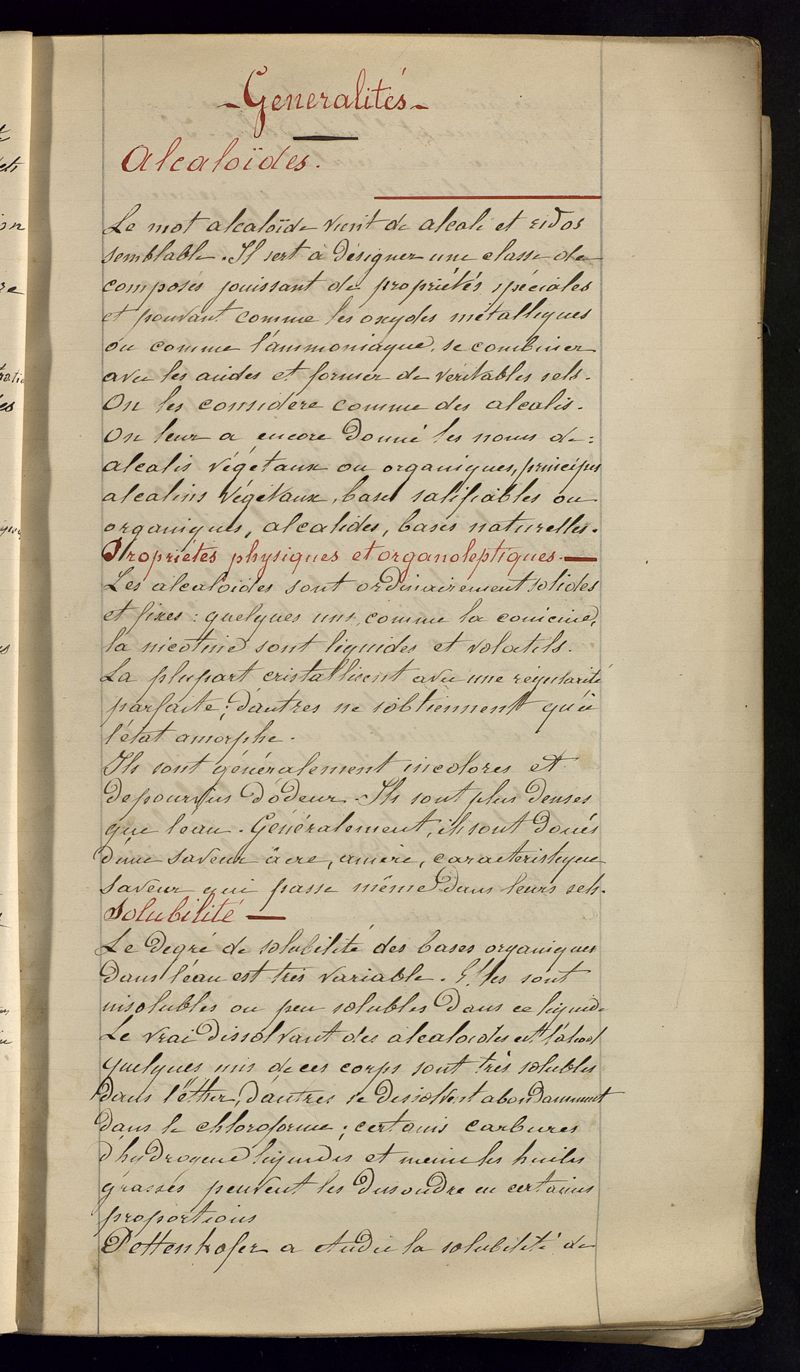 - Generalités -
Alcaloïdes.
Le mot alcaloïde vient de alcali et εἶδος
semblable. Il sert à désigner une classe de
composés jouissant de propriétés spéciales
et pouvant comme les oxydes métalliques
ou comme l'ammoniaque, se combiner
avec les acides et former de véritables sels.
On les considere comme des alcalis.
On leur a encore donné les noms de:
alcalis végétaux ou organiques, principes
alcalins végétaux, bases salifiables ou
organiques, alcalides, bases naturelles.
Propriétés physiques et organoleptiques. —
Les alcaloïdes sont ordinairement solides
et fixes: quelques uns, comme la conicine,
la nicotine sont liquides et volatils.
La plupart cristallisent avec une régularité
parfaite; d'autres ne s'obtiennent qu'à
l'état amorphe.
Ils sont généralement incolores et
depourvus d'odeur. Ils sont plus denses
que l'eau. Généralement, ils sont doués
d'une saveur âcre, amère, caractéristique
saveur qui passe même dans leurs sels.
Solubilité —
Le degré de solubilité des bases organiques
dans l'eau est très variable. Elles sont
insolubles ou peu solubles dans ce liquide
Le vrai dissolvant des alcaloïdes est l'alcool
quelques uns de ces corps sont très solubles
dans l'éther, d'autres se dissolvent abondamment
dans le chloroforme; certains carbures
d'hydrogène liquides et même les huiles
grasses peuvent les dissoudre en certaines
proportions
Pettenkofer a étudié la solubilité de